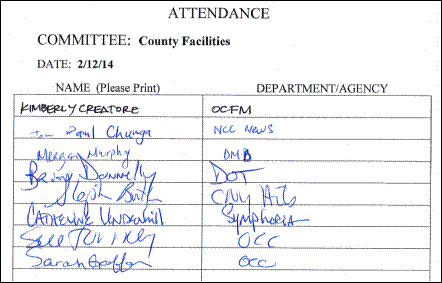 ATTENDANCE
COMMITTEE: County Facilities
DATE: 2/12/14
NAME (Please Print) DEPARTMENT/AGENCY
KIMBERLY CREATORE OCFM
Paul Chunga NCC NEWS
Meegan Murphy DMB
Brian Donnelly DOT
Steph CNY Arts
CATHERINE UNDERHILL SYMPHORIA
OCC
Sarah OCC